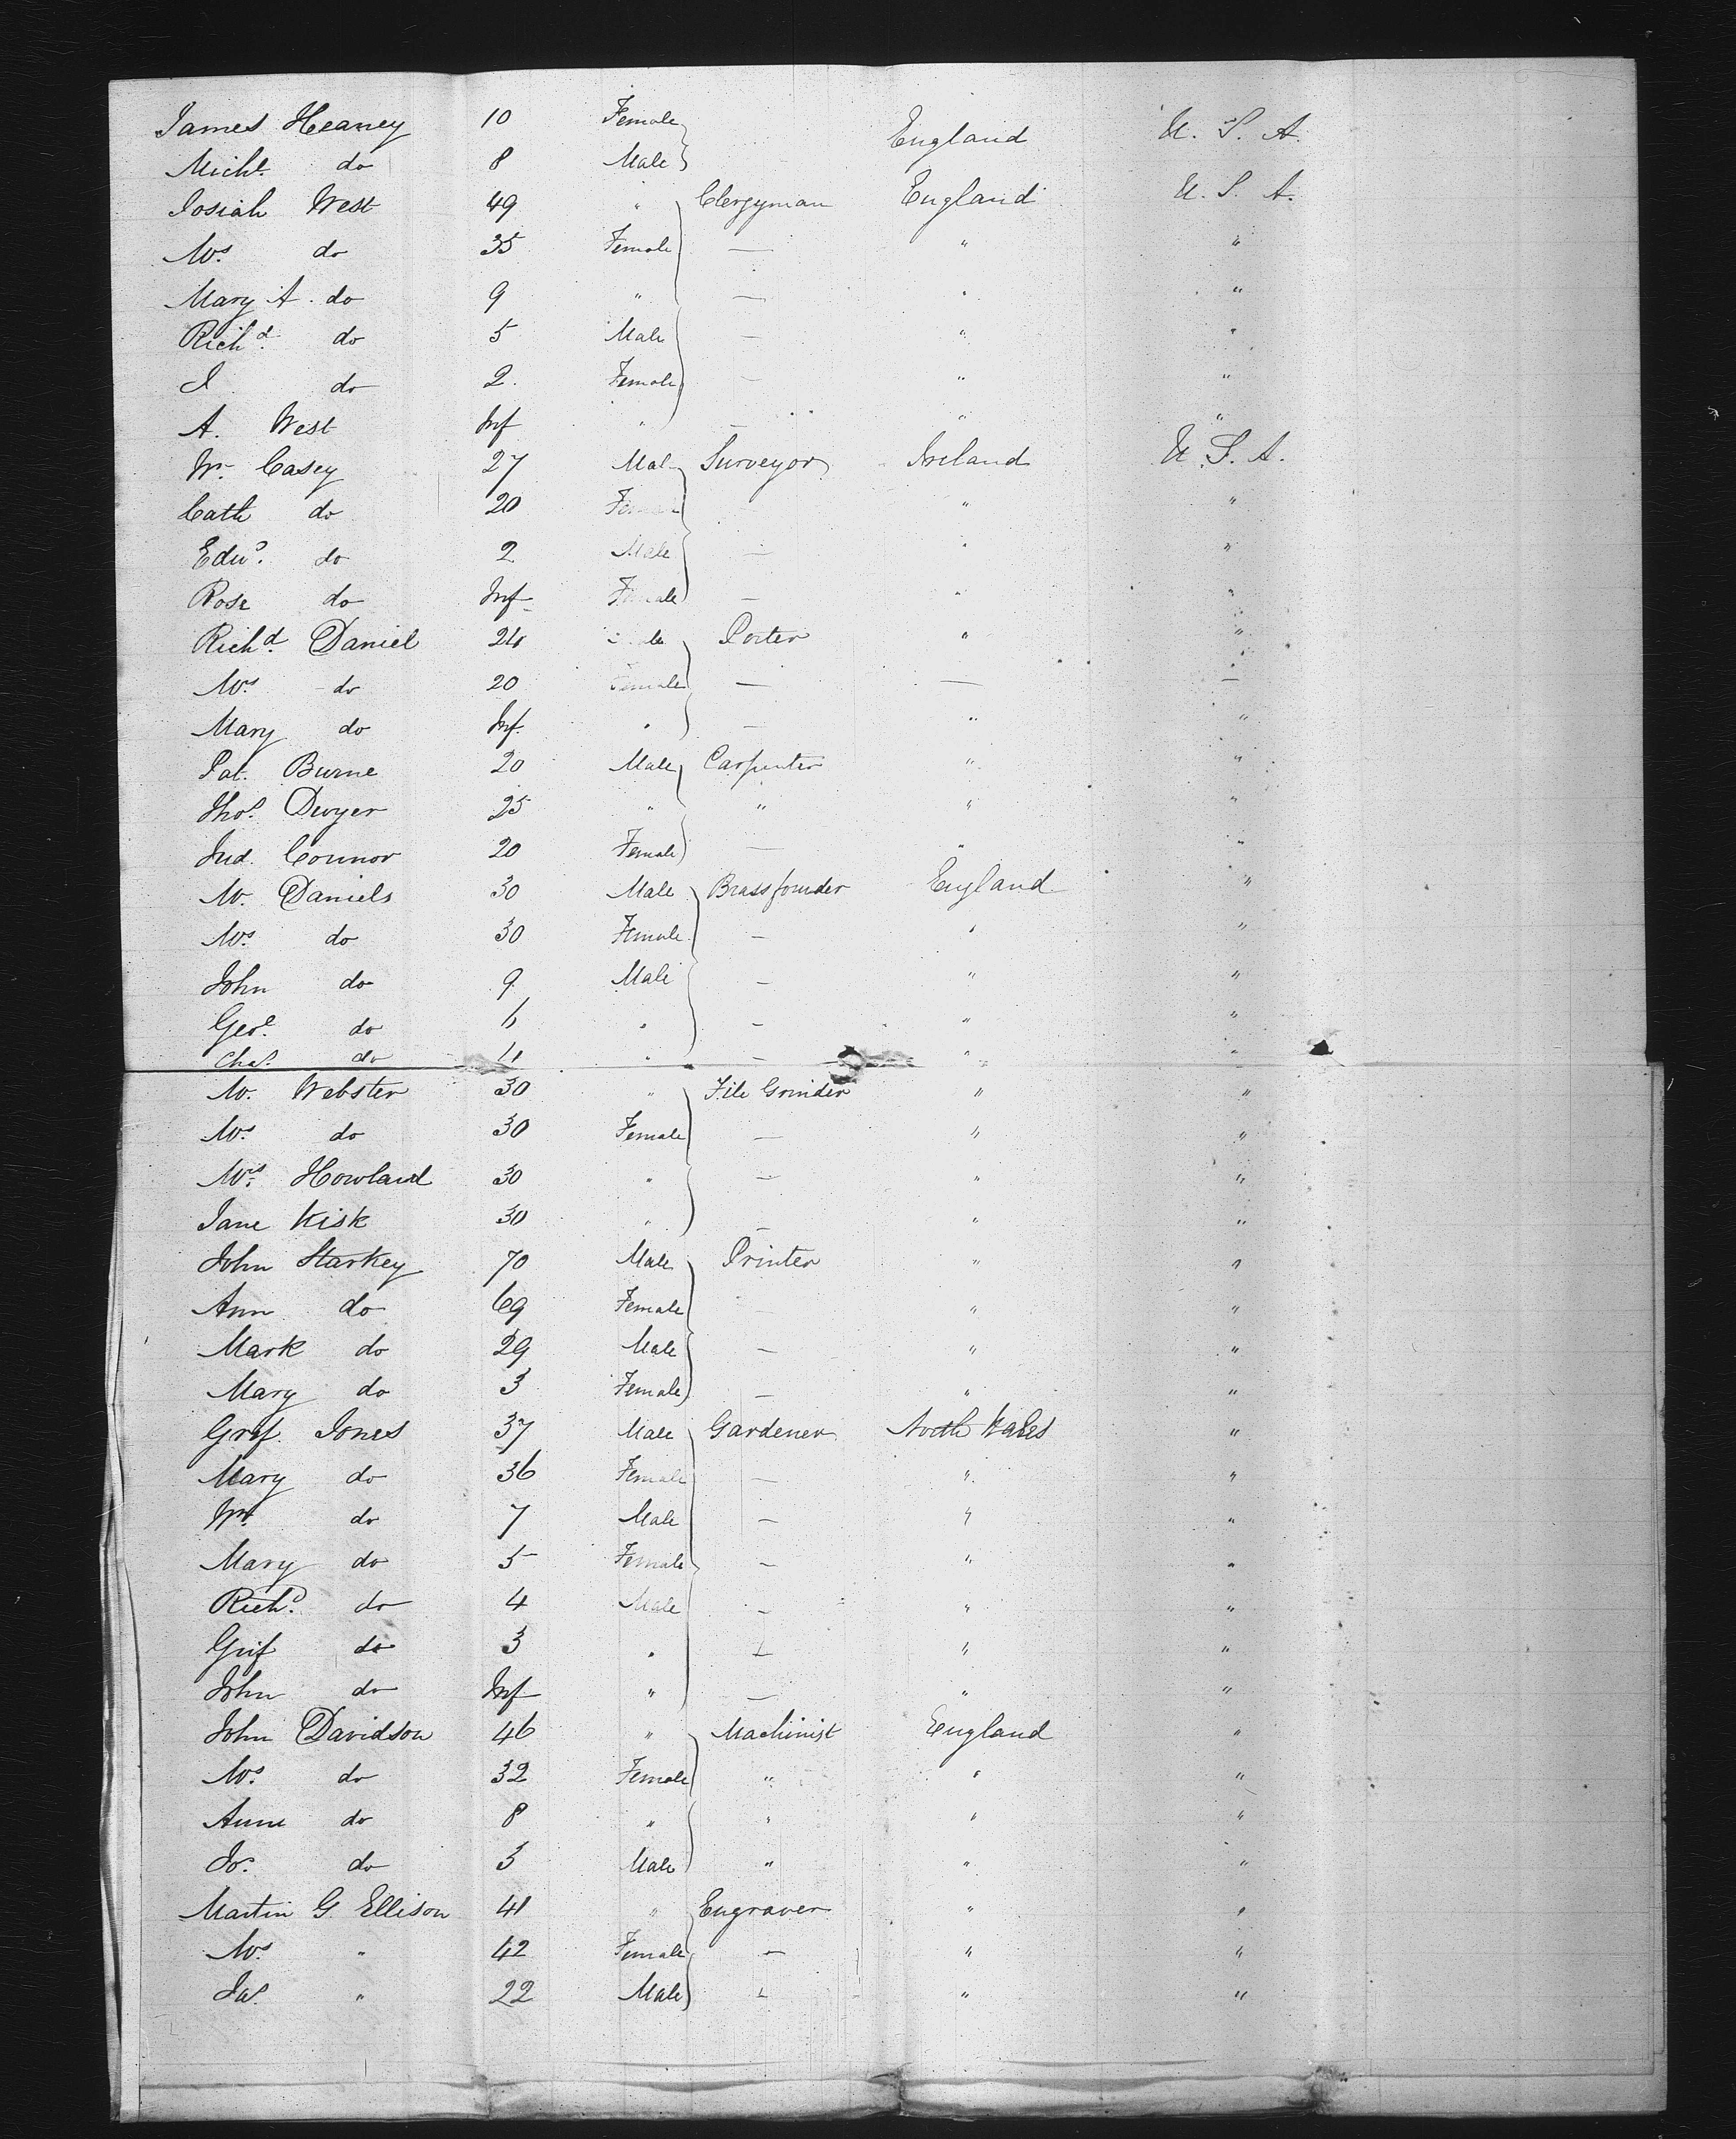 James Heaney 10 Female England U. S. A.
Michl. do 8 Male
Josiah West 49 " Clergyman England U. S. A.
Mrs. do 35 Female — " "
Mary A. do 9 " — " "
Richd. do 5 Male — " "
J do 2. Female — " "
A. West Inf " — " "
Wm Casey 27 Male Surveyor Ireland U. S. A.
Cath do 20 Female " "
Edwd. do 2 Male — " "
Rose do Inf Female — " "
Richd. Daniel 24 Male Porter " "
Mrs. do 20 Female — — —
Mary do Inf. " — " "
Pat. Burne 20 Male Carpenter " "
Thos. Dwyer 25 " " " "
Jud. Connor 20 Female — " "
M. Daniels 30 Male Brassfounder England "
Mrs. do 30 Female — " "
John do 9 Male — " "
Geoe. do 6 " — " "
Chas. do 4 " — " "
M. Webster 30 " File Grinder " "
Mrs. do 30 Female — " "
Mrs. Howland 30 " — " "
Jane Kisk 30 " — " "
John Starkey 70 Male Printer " "
Ann do 69 Female — " "
Mark do 29 Male — " "
Mary do 3 Female — " "
Grif. Jones 37 Male Gardener North Wales "
Mary do 36 Female — " "
Wm. do 7 Male — " "
Mary do 5 Female — " "
Richd. do 4 Male — " "
Grif do 3 " — " "
John do Inf " — " "
John Davidson 46 " Machinist England "
Mrs. do 32 Female " " "
Anne do 8 " " " "
Jos. do 3 Male " " "
Martin G. Ellison 41 " Engraver " "
Mrs. " 42 Female — " "
Jas. " 22 Male — " "